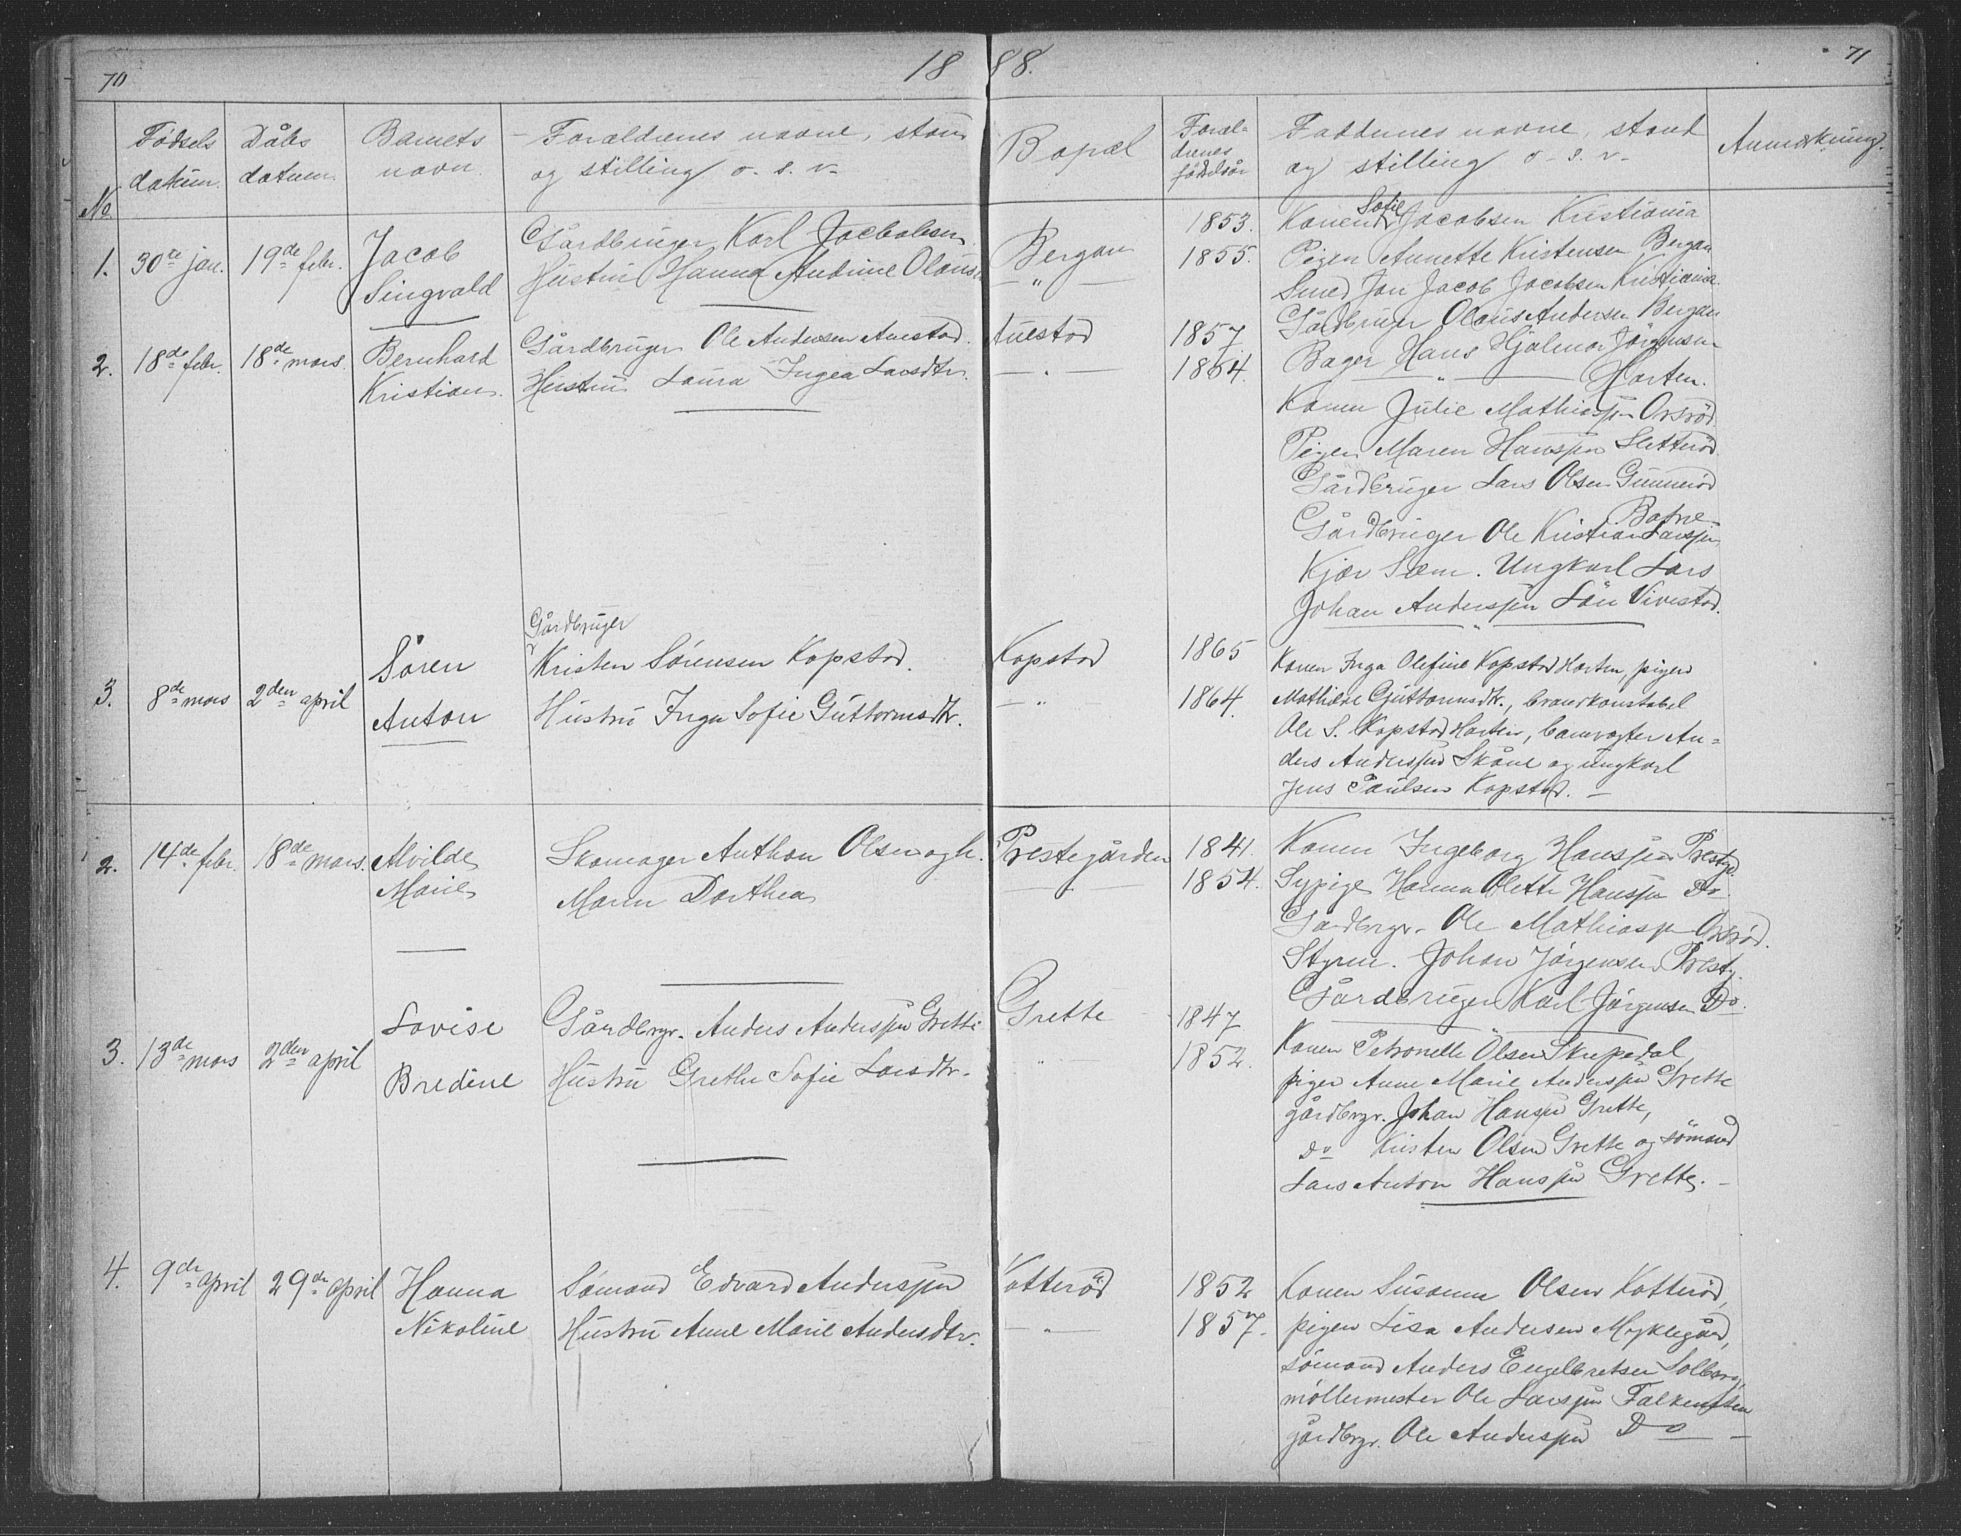 70
1888.
71
No.
Fødsels datum.
Dåbs datum.
Barnets navn.
Forældrenes navne, stand og stilling o. s. v.
Bopæl
Foræl-
drenes
fødselsår
Faddernes navne, stand
og stilling o. s. v.
Anmærkning.
1. 30te jan. 19de febr. Jacob
Singvald
Gårdbruger Karl Jacobsen
Hustru Hanna Andrine Olaus
Bergan
— " —
1853.
1855.
Konen Sofie Jacobsen Kristiania
Pigen Annette Kristensen Bergan
Smed Jan Jacob Jacobsen Kristiania
Gårdbruger Olaus Andersen Bergan
2. 18de febr. 18de mars. Bernhard
Kristian
Gårdbruger Ole Andersen Auestad.
Hustru Laura Ingea Larsdtr.
Auestad
— " —
1857
1864.
Bager Hans Hjalmar Jørgensen
— " — Horten.
Konen Julie Mathiassen Orsrød
Pigen Maren Hanssen Sletterød
Gårdbruger Lars Olsen Gunnerød
Gårdbruger Ole Kristian Larssen
Kjær Sæm. Ungkarl Lars
Johan Anderssen Vivestad.
3. 8de mars 2den april
Søren
Anton
Gårdbruger
Kristen Sørensen Kopstad.
Hustru Inga Sofie Guttormsdtr.
Kopstad
— "
1865
1864.
Konen Inga Olefine Kopstad Horten, pigen
Mathilde Guttormsdtr., brandkonstabel
Ole S. Kopstad Horten, banevogter An-
ders Anderssen Skåne og ungkarl
Jens Paulsen Kopstad. —
2. 14de febr. 18de mars. Alvilde
Marie
Skomager Anthon Olsen og h.
Maren Dorthea
Prestegården
— " —
1841.
1854.
Konen Ingeborg Hanssen Prestg.
Sypige Hanna Olette Hanssen Do
Gårdbrgr. Ole Mathiassen Orsrød.
Styrm. Johan Jørgensen Prestg.
Gårdbruger Karl Jørgensen Do.
3. 13de mars 2den april
Lovise
Bredine
Gårdbrgr. Anders Anderssen Grette
Hustru Grethe Sofie Larsdtr.
Grette
"
1847
1852.
Konen Petronelle Olsen Skrepedal,
pigen Anne Marie Anderssen Grette
gårdbrgr. Johan Hanssen Grette,
Do Kristen Olsen Grette og sømand
Lars Anton Hanssen Grette. —
4. 9de april 29de april Hanna
Nikoline
Sømand Edvard Anderssen
Hustru Anne Marie Andersdtr.
Kotterød
— " —
1852
1857.
Konen Susanne Olsen Kotterød,
pigen Lisa Andersen Myklegård,
sømand Anders Engelbretsen Solberg,
møllermester Ole Larssen Falkensten
gårdbrgr. Ole Anderssen Do —